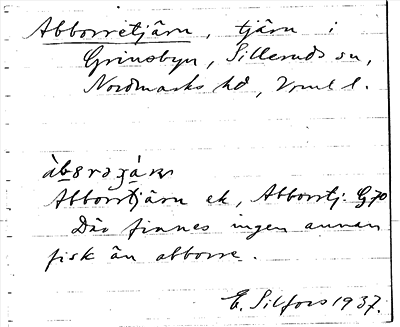 Abborretjärn, tjärn i
Grinsbyn, Silleruds sn,
Nordmarks hd, Vrml l.
Abborrtjärn ek, Abborrtj. G 70
Där finnes ingen annan
fisk än abborre.
E. Silfors 1937.